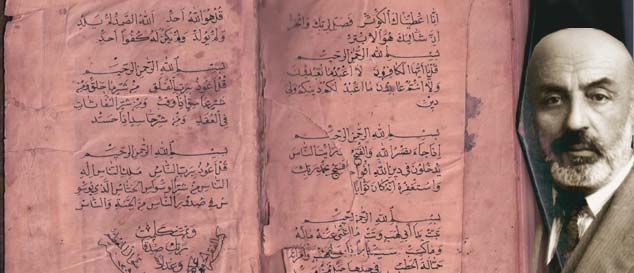 انا اعطيناك الكوثر فصل لربك وانحر
ان شانئك هو الابتر
بسم الله الرحمن الرحيم
قل يا ايها الكافرون لا اعبد ما تعبدون
ولا انتم عابدون ما اعبد لكم دينكم ولي
دين
بسم الله الرحمن الرحيم
اذا جاء نصر الله والفتح ورايت الناس
يدخلون في دين الله افواجا فسبح بحمد ربك
واستغفره انه كان توابا
بسم الله الرحمن الرحيم
تبت يدا ابي لهب وتب ما اغنى عنه ماله
وما كسب سيصلى نارا ذات لهب وامراته
حمالة الحطب في جيدها
قل هو الله احد الله الصمد لم يلد
ولم يولد ولم يكن له كفوا احد
بسم الله الرحمن الرحيم
قل اعوذ برب الفلق من شر ما خلق ومن
شر غاسق اذا وقب ومن شر النفاثات
في العقد ومن شر حاسد اذا حسد
بسم الله الرحمن الرحيم
قل اعوذ برب الناس ملك الناس اله
الناس من شر الوسواس الخناس الذي يوسوس
في صدور الناس من الجنة والناس
وتمت كلمت
ربك صدقا
وعدلا